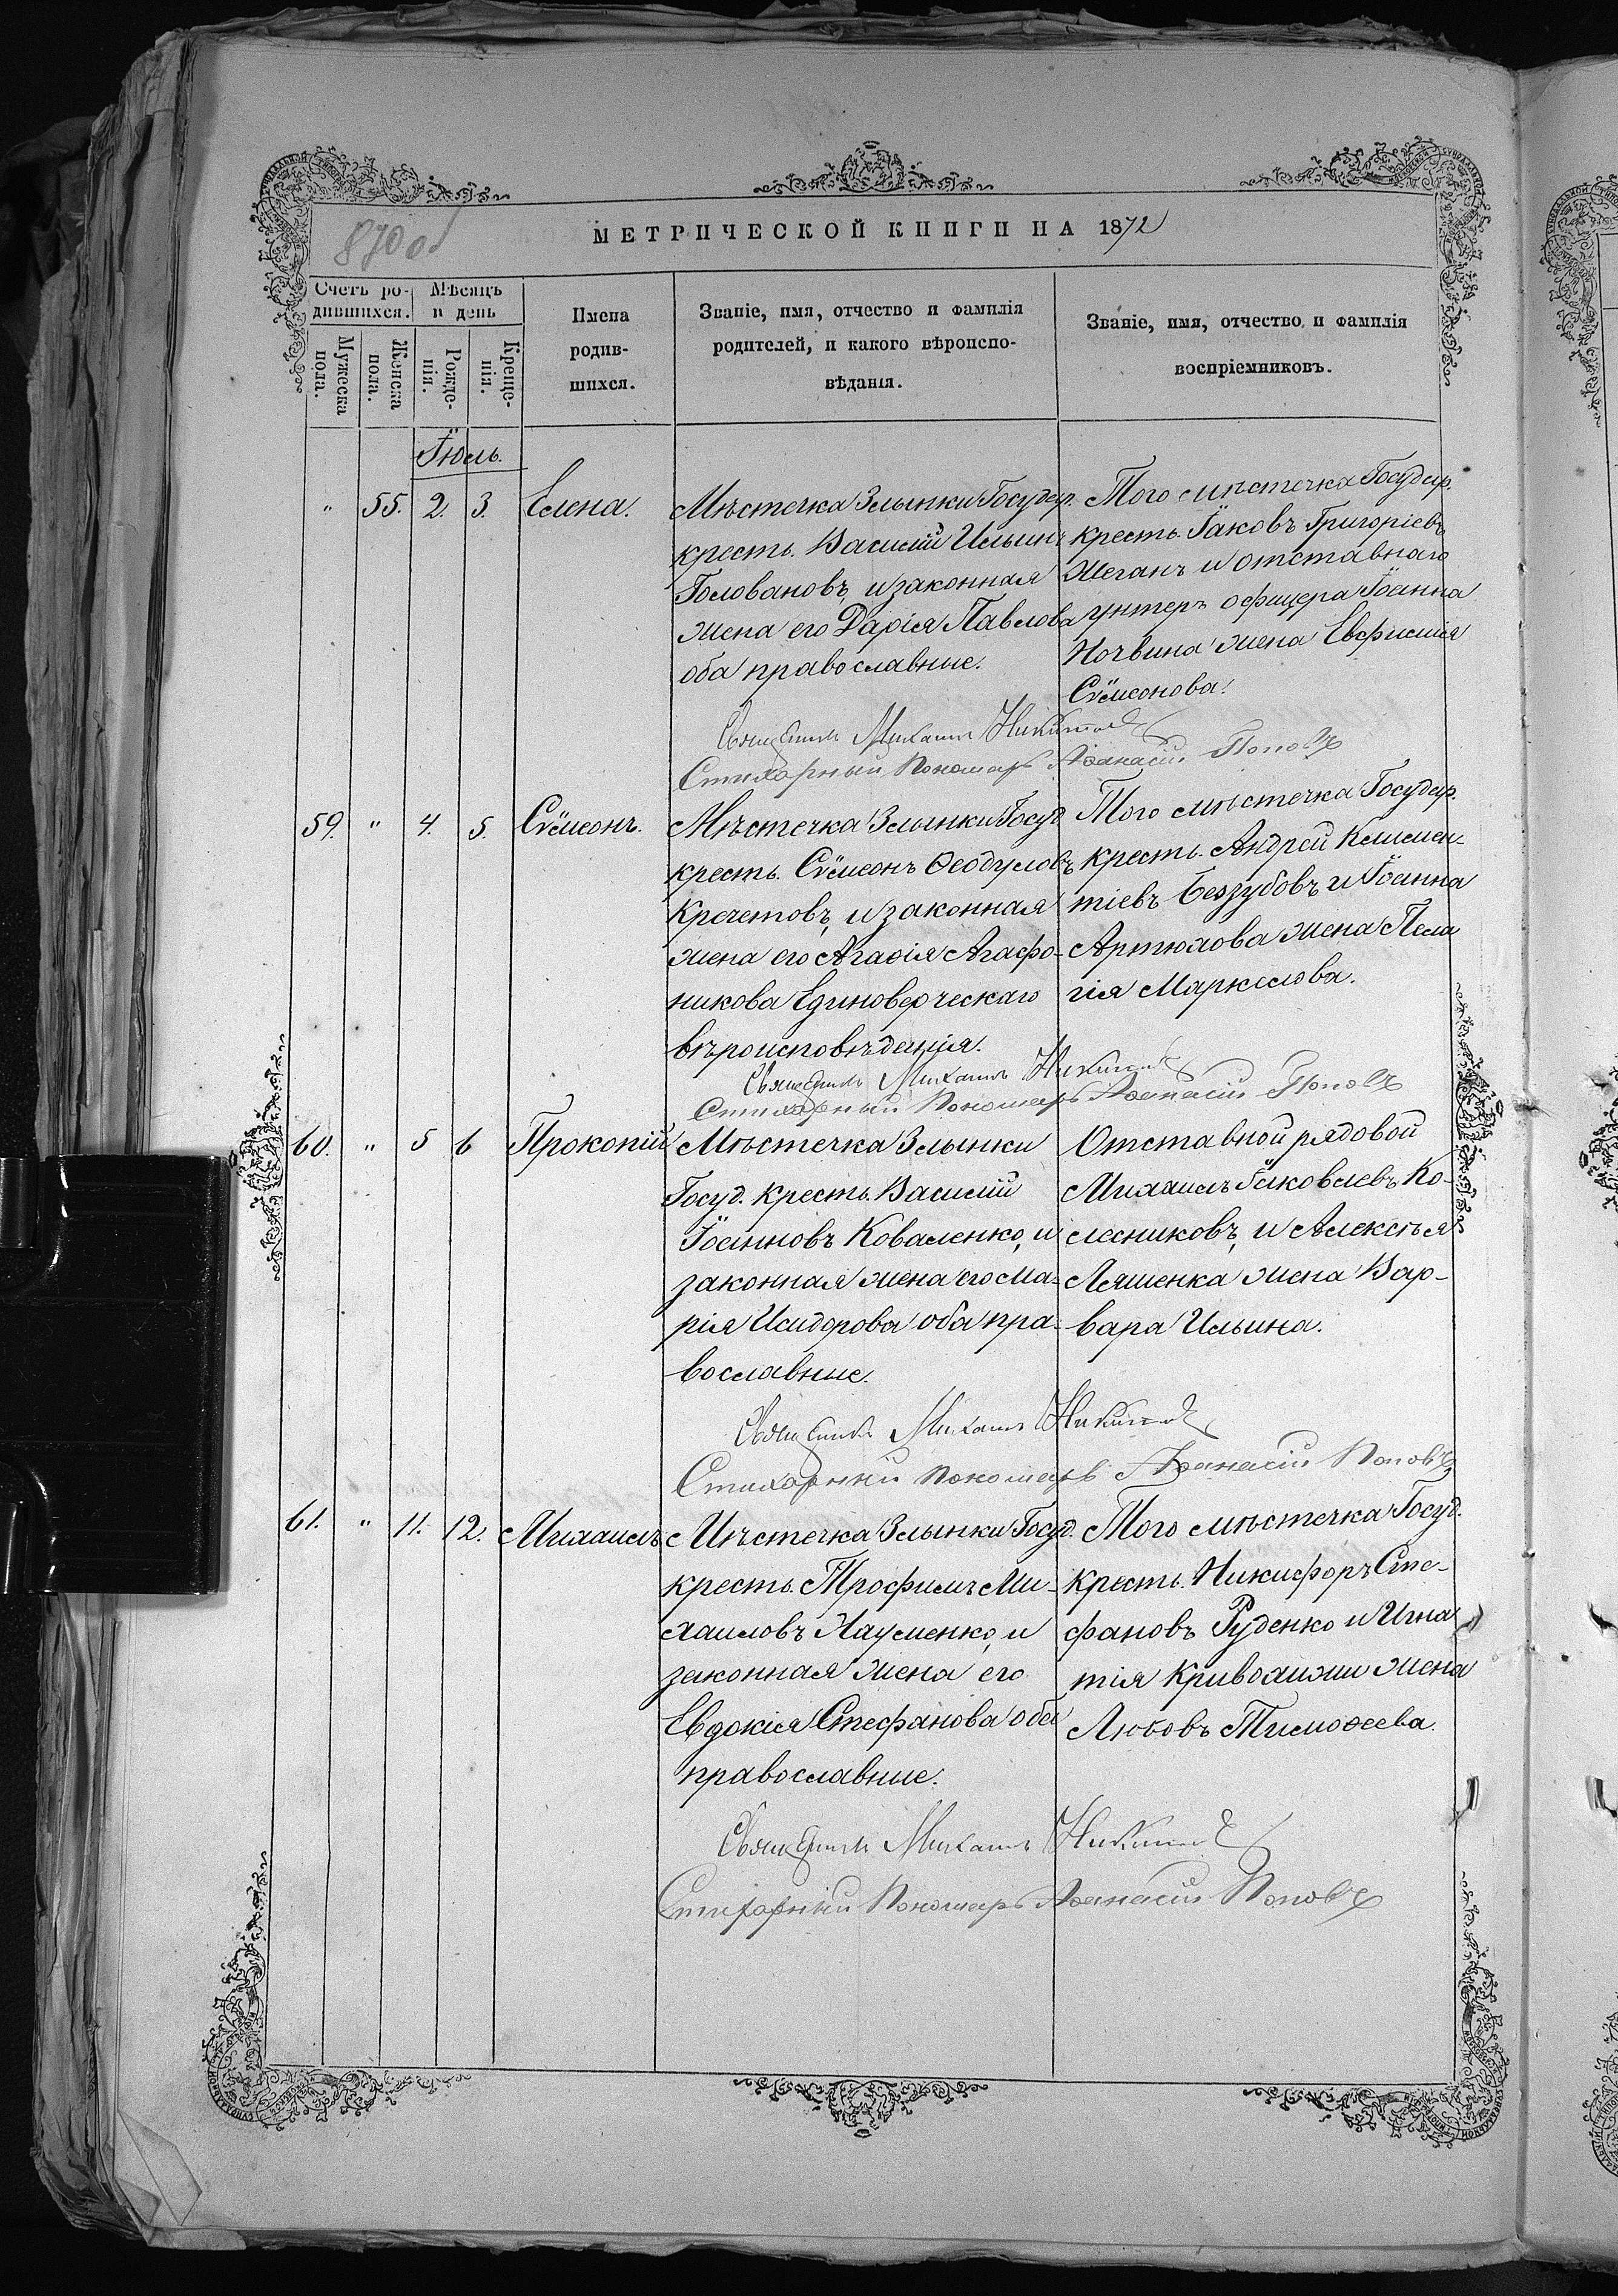 870 об
МЕТРИЧЕСКОЙ КНИГИ НА 1872
Счетъ ро-
дившихся.
Мѣсяцъ
и день
Мужеска
пола.
Женска
пола.
Рожде-
нія.
Креще-
нія.
Имена
родив-
шихся.
Званіе, имя, отчество и фамилія
родителей, и какого вѣроиспо-
вѣданія.
Званіе, имя, отчество и фамилія
воспріемниковъ.
Іюль.
" 55. 2. 3. Елена.
Мѣстечка Злынки Государ.
кресть. Василій Ильинъ
Головановъ, и законная
жена его Дарія Павлова
оба православные.
Того мѣстечка Государ.
кресть. Іаковъ Григоріевъ
Меганъ и отставнаго
унтеръ офицера Іоанна
Ночвина жена Евфимія
Сѵмеонова.
Священникъ Михаилъ Никитов
Стихарный Пономарь Аѳанасій Поповъ
59. " 4. 5. Сѵмеонъ.
Мѣстечка Злынки Госуд.
кресть. Сѵмеонъ Ѳеодуловъ
Кречетовъ, и законная
жена его Агаѳія Агафо-
никова Единоверческаго
вѣроисповѣданія.
Того мѣстечка Государ.
кресть. Андрей Клемен-
тіевъ Беззубовъ и Іоанна
Артюхова жена Пела
гія Маркелова.
Священникъ Михаилъ Никитов
Стихарный Пономарь Аѳанасій Поповъ
60. " 5 6 Прокопій
Мѣстечка Злынки
Госуд. кресть. Василій
Іоанновъ Коваленко, и
законная жена его Ма-
рія Исидорова оба пра-
вославные.
Отставной рядовой
Михаилъ Іаковлевъ Ко-
лесниковъ, и Алексѣя
Ляшенка жена Вар-
вара Ильина.
Священникъ Михаилъ Никитов
Стихарный Пономарь Аѳанасій Поповъ
61. " 11. 12. Михаилъ
Мѣстечка Злынки Госуд.
кресть. Трофимъ Ми-
хаиловъ Науменко, и
законная жена его
Евдокія Стефанова оба
православные.
Того мѣстечка Госуд.
кресть. Никифоръ Сте-
фановъ Руденко и Игна
тія Кривохижи жена
Любовь Тимоѳеева.
Священникъ Михаилъ Никитов
Стихарный Пономарь Аѳанасій Поповъ